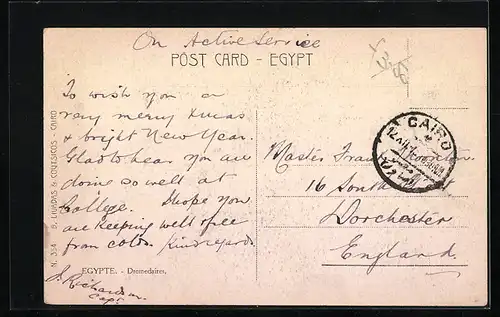 On Active Service
POST CARD - EGYPT
To wish you a
very merry Xmas
& bright New Year.
Glad to hear you are
doing so well at
College. I hope you
are keeping well & free
from colds. Kind regards.
EGYPTE. - Dromedaires.
S. Richardson
Capt
N. 354 B. LIVADAS & COUTSICOS - CAIRO
CAIRO
Master
16 South
Dorchester
England